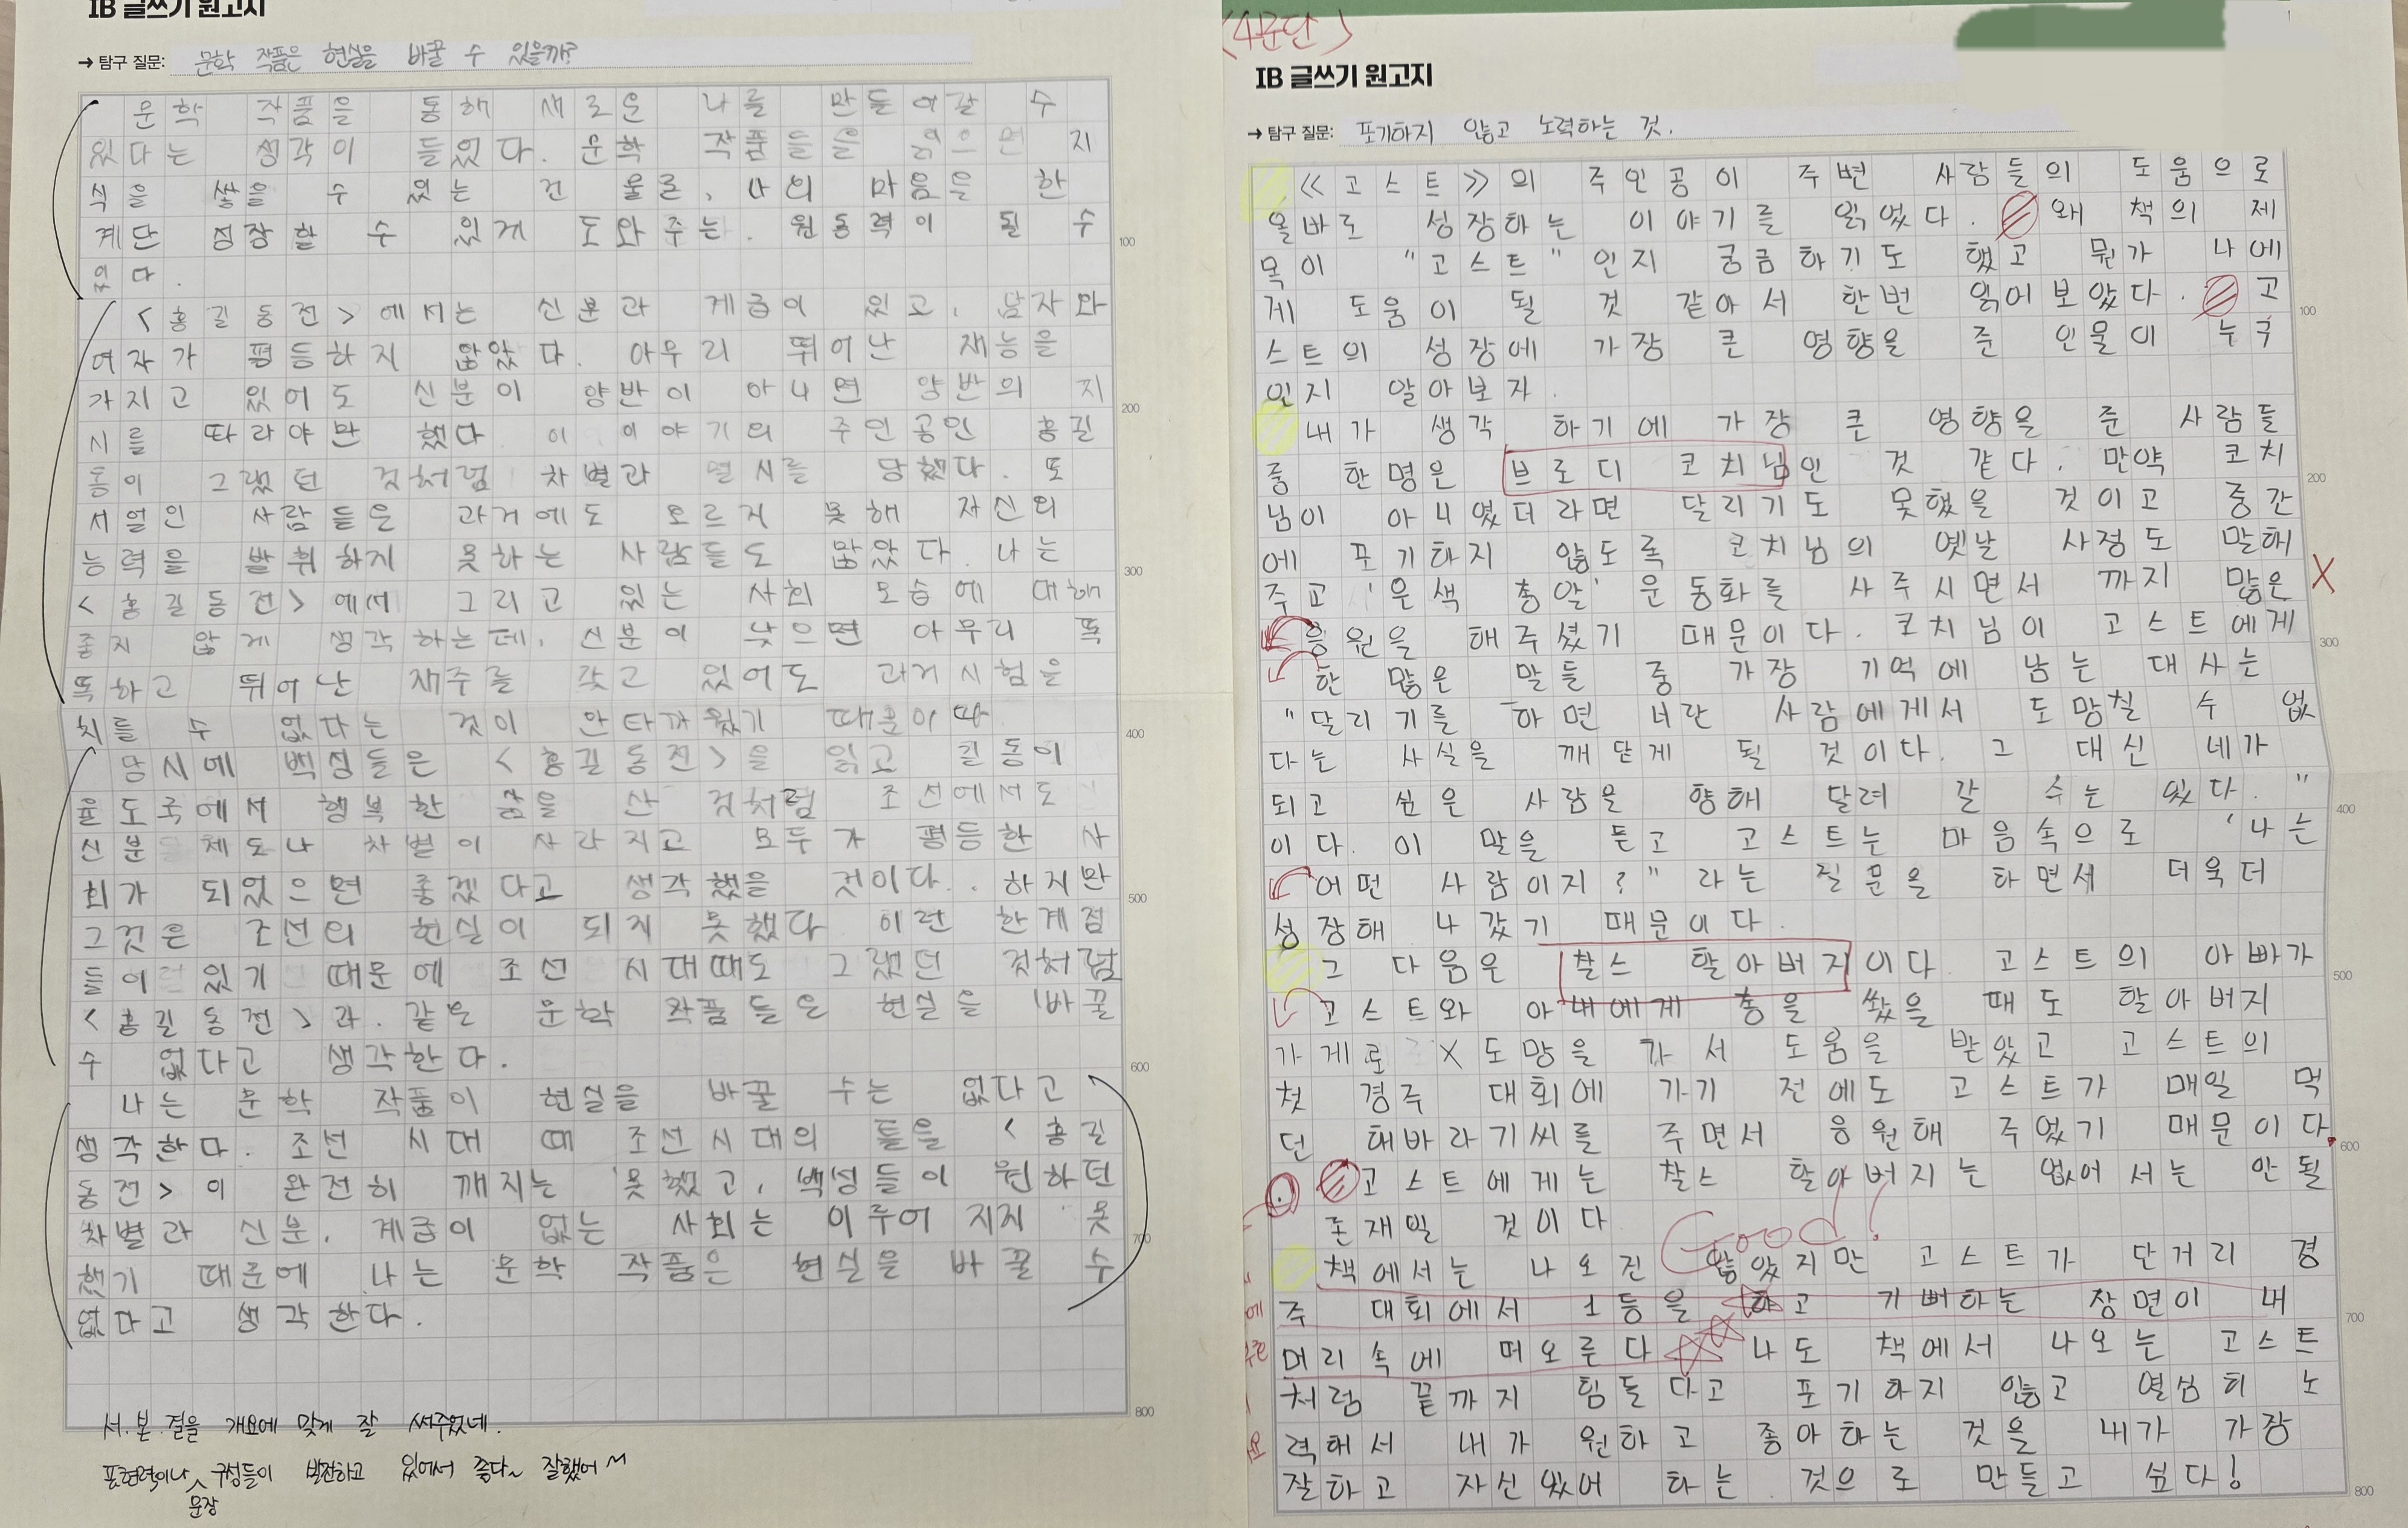 IB 글쓰기 원고지
→ 탐구 질문: 문학 작품은 현실을 바꿀 수 있을까?
문학 작품을 통해 새로운 나를 만들어갈 수
있다는 생각이 들었다. 문학 작품들을 읽으면 지
식을 쌓을 수 있는 건 물론, 나의 마음을 한
계단 성장할 수 있게 도와주는. 원동력이 될 수
있다.
<홍길동전>에서는 신분과 계급이 있고, 남자와
여자가 평등하지 않았다. 아무리 뛰어난 재능을
가지고 있어도 신분이 양반이 아니면 양반의 지
시를 따라야만 했다. 이 이야기의 주인공인 홍길
동이 그랬던 것처럼 차별과 멸시를 당했다. 또
서얼인 사람들은 과거에도 오르지 못해 자신의
능력을 발휘하지 못하는 사람들도 많았다. 나는
<홍길동전>에서 그리고 있는 사회 모습에 대해
좋지 않게 생각하는데, 신분이 낮으면 아무리 똑
똑하고 뛰어난 재주를 갖고 있어도 과거시험을
치를 수 없다는 것이 안타까웠기 때문이다
당시에 백성들은 <홍길동전>을 읽고 길동이
율도국에서 행복한 삶을 산 것처럼 조선에서도
신분 체도나 차별이 사라지고 모두가 평등한 사
회가 되었으면 좋겠다고 생각했을 것이다. 하지만
그것은 조선의 현실이 되지 못했다 이런 한계점
들이 있기 때문에 조선 시대때도 그랬던 것처럼
<홍길동전>과. 같은 문학 작품들은 현실을 바꿀
수 없다고 생각한다.
나는 문학 작품이 현실을 바꿀 수는 없다고
생각한다. 조선 시대 때 조선시대의 틀을 <홍길
동전>이 완전히 깨지는 못했고, 백성들이 원하던
차별과 신분, 계급이 없는 사회는 이루어 지지 못
했기 때문에 나는 문학 작품은 현실을 바꿀 수
없다고 생각한다.
100
200
300
400
500
600
700
800
서.본.결을 개요에 맞게 잘 써주었네.
표현력이나 문장 구성들이 발전하고 있어서 좋다~ 잘했어~
(4문단)
IB 글쓰기 원고지
→ 탐구 질문: 포기하지 않고 노력하는 것.
≪고스트≫의 주인공이 주변 사람들의 도움으로
올바로 성장하는 이야기를 읽었다. 왜 책의 제
목이 "고스트"인지 궁금하기도 했고 뭔가 나에
게 도움이 될 것 같아서 한번 읽어보았다. 고
스트의 성장에 가장 큰 영향을 준 인물이 누구
인지 알아보자.
내가 생각 하기에 가장 큰 영향을 준 사람들
중 한명은 브로디 코치님인 것 같다. 만약 코치
님이 아니였더라면 달리기도 못했을 것이고 중간
에 포기하지 않도록 코치님의 옛날 사정도 말해
주고 '은색 총알' 운동화를 사주시면서 까지 많은
응원을 해주셨기 때문이다. 코치님이 고스트에게
한 많은 말들 중 가장 기억에 남는 대사는
"달리기를 하면 너란 사람에게서 도망칠 수 없
다는 사실을 깨닫게 될 것이다. 그 대신 네가
되고 싶은 사람을 향해 달려 갈 수는 있다."
이다. 이 말을 듣고 고스트는 마음속으로 '나는
어떤 사람이지?" 라는 질문을 하면서 더욱더
성장해 나갔기 때문이다.
그 다음은 찰스 할아버지이다 고스트의 아빠가
고스트와 아내에게 총을 쐈을 때도 할아버지
가게로 X도망을 가서 도움을 받았고 고스트의
첫 경주 대회에 가기 전에도 고스트가 매일 먹
던 해바라기씨를 주면서 응원해 주었기 때문이다.
고스트에게는 찰스 할아버지는 없어서는 안될
존재일 것이다
Good!
책에서는 나오진 않았지만 고스트가 단거리 경
주 대회에서 1등을 하고 기뻐하는 장면이 내
머리속에 떠오른다 나도 책에서 나오는 고스트
처럼 끝까지 힘들다고 포기하지 않고 열심히 노
력해서 내가 원하고 좋아하는 것을 내가 가장
잘하고 자신있어 하는 것으로 만들고 싶다!
100
200
300
400
500
600
700
800